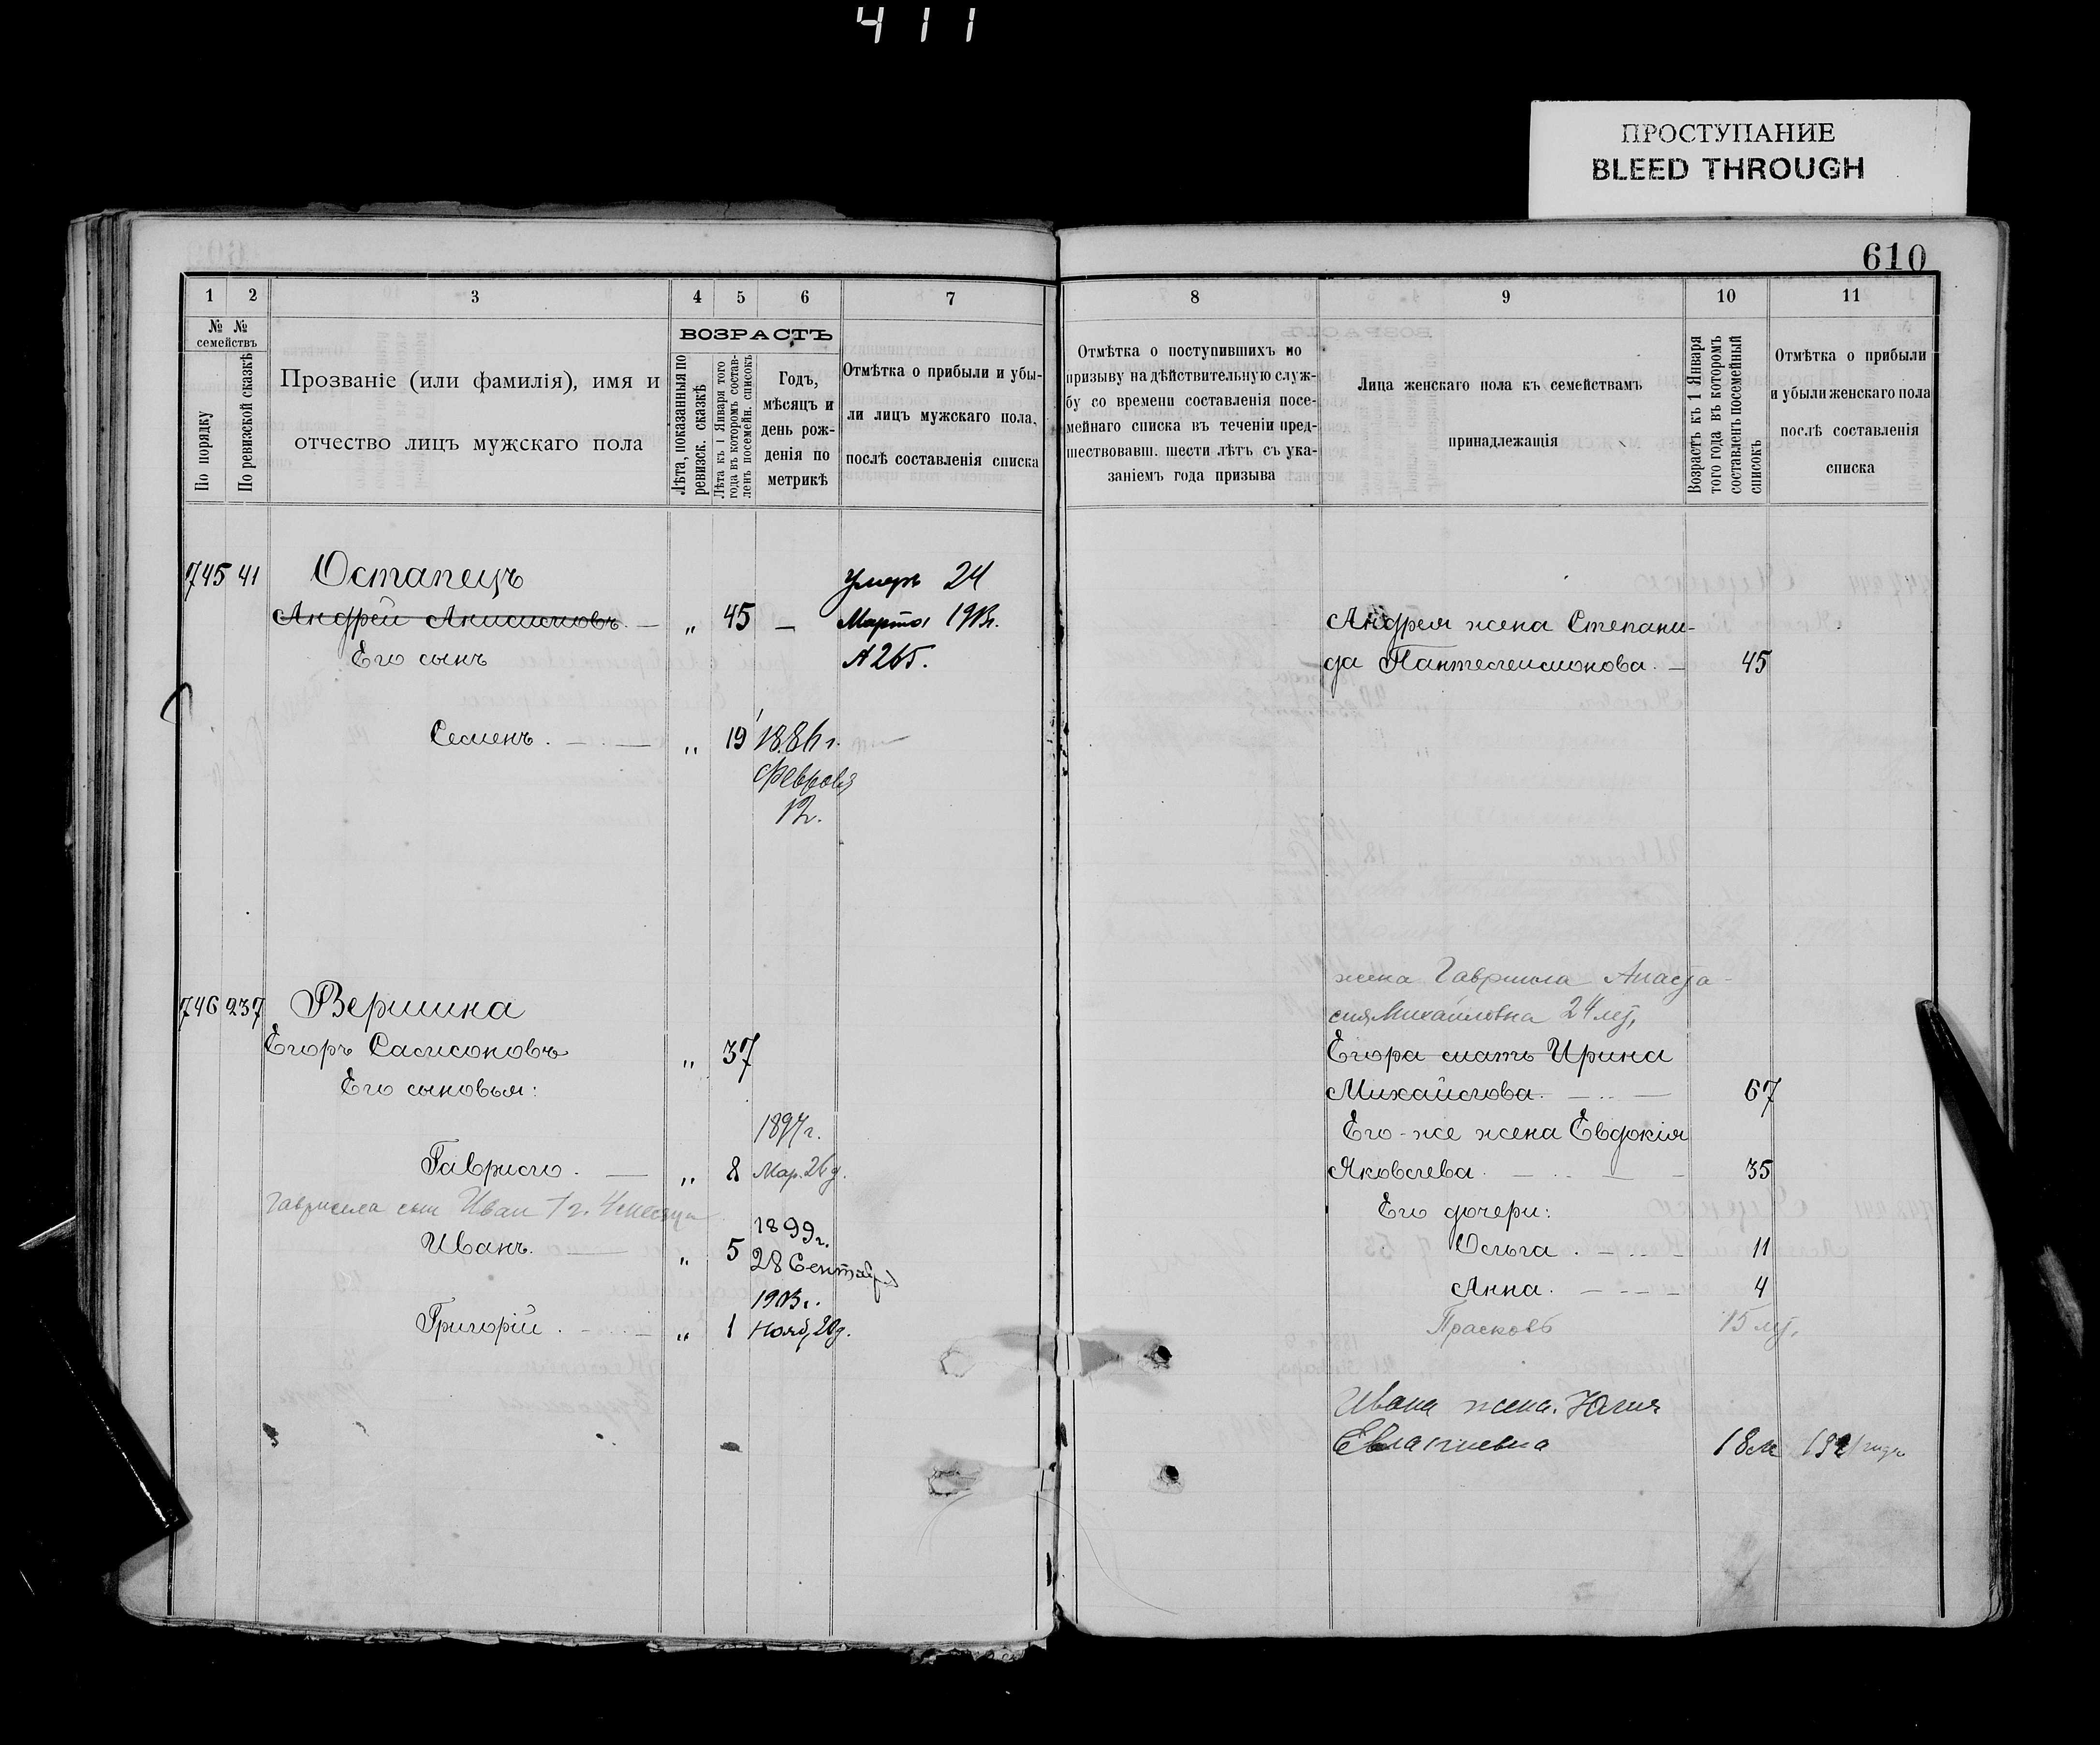 411
ПРОСТУПАНИЕ
BLEED THROUGH
610
1 2 3 4 5 6 7
№ № семействъ
По порядку
По ревизской сказкѣ
Прозваніе (или фамилія), имя и
отчество лицъ мужскаго пола
ВОЗРАСТЪ
Лѣта, показанныя по
ревизск. сказкѣ
Лѣта къ 1 Января того
года въ которомъ состав-
ленъ посемейн. списокъ
Годъ,
мѣсяцъ и
день рож-
денія по
метрикѣ
Отмѣтка о прибыли и убы-
ли лицъ мужскаго пола,
послѣ составленія списка
745 41 Остапецъ
Андрей Анисимовъ. — „ 45 —
Умеръ 24
Марта 1913г.
А 265.
Его сынъ
Семенъ. — „ 19 1886 г.
Февраля
12.
746 237 Вершина
Егоръ Самсоновъ „ 37
Его сыновья:
Гавріилъ. — „ 8 1897 г.
Мар. 26 д.
Гавриила сын Иван 1 г. 4 месяца
Иванъ. — „ 5 1899 г.
28 Сентября
Григорій. — „ 1 1903 г.
Нояб. 20 д.
8 9 10 11
Отмѣтка о поступившихъ по
призыву на дѣйствительную служ-
бу со времени составленія посе-
мейнаго списка въ теченіи пред-
шествовавш. шести лѣтъ съ ука-
заніемъ года призыва
Лица женскаго пола къ семействамъ
принадлежащія
Возрастъ къ 1 Января
того года въ которомъ
составленъ посемейный
списокъ
Отмѣтка о прибыли
и убыли женскаго пола
послѣ составленія
списка
Андрея жена Степани-
да Пантелеимонова. — 45
жена Гавриила Анаста-
сия Михайловна 24 лет,
Егора мать Ирина
Михайлова. — 67
Его-же жена Евдокія
Яковлева. — 35
Его дочери:
Ольга. — 11
Анна. — 4
Прасковья 15 лет,
Ивана жена. Юлия
18 л. 1921 года